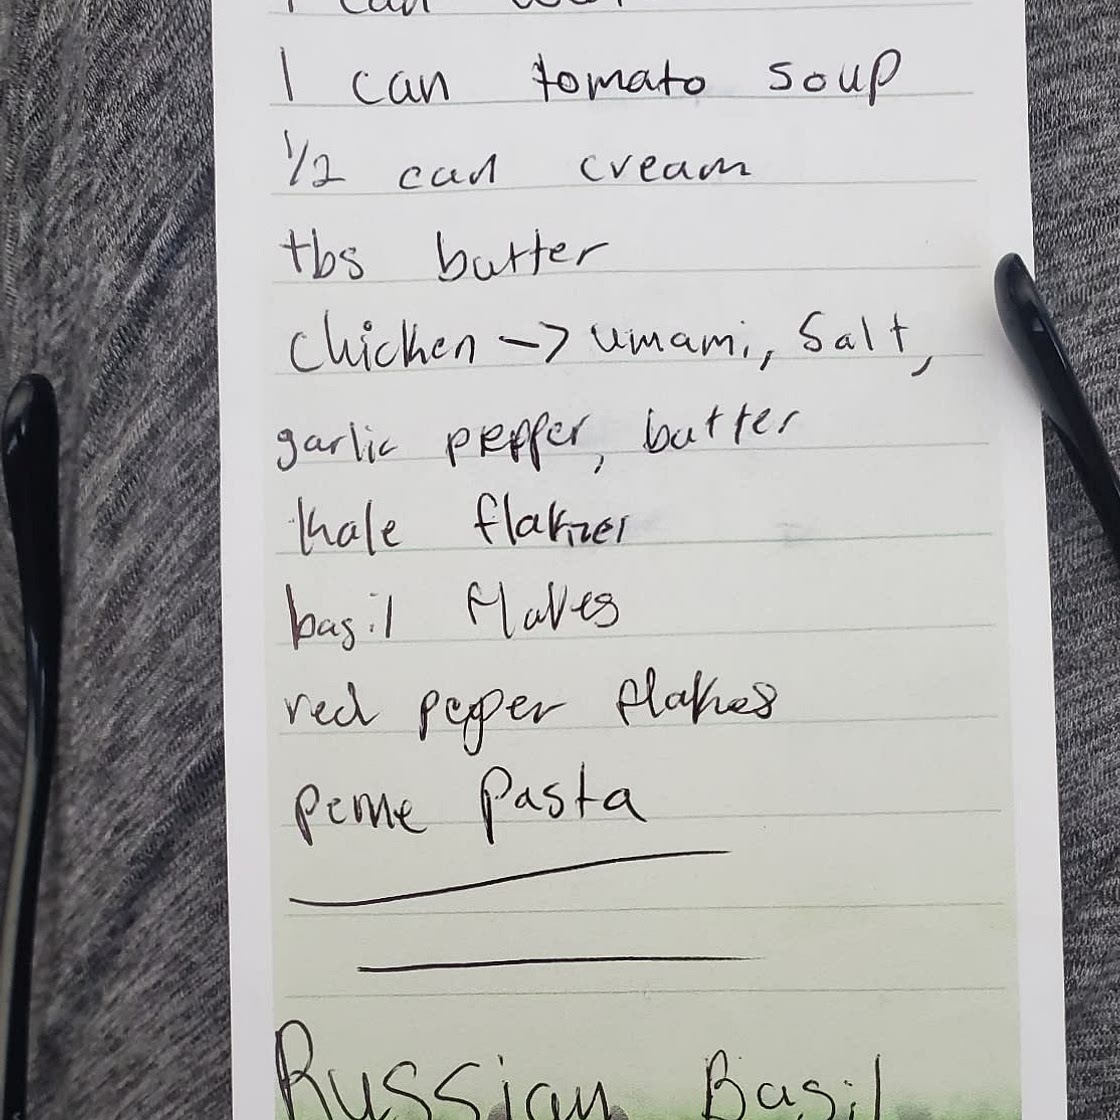 1 can
1 can tomato soup
1/2 can cream
tbs butter
chicken -> umami, salt,
garlic pepper, butter
kale flakes
basil flakes
red pepper flakes
penne pasta
Russian Basil